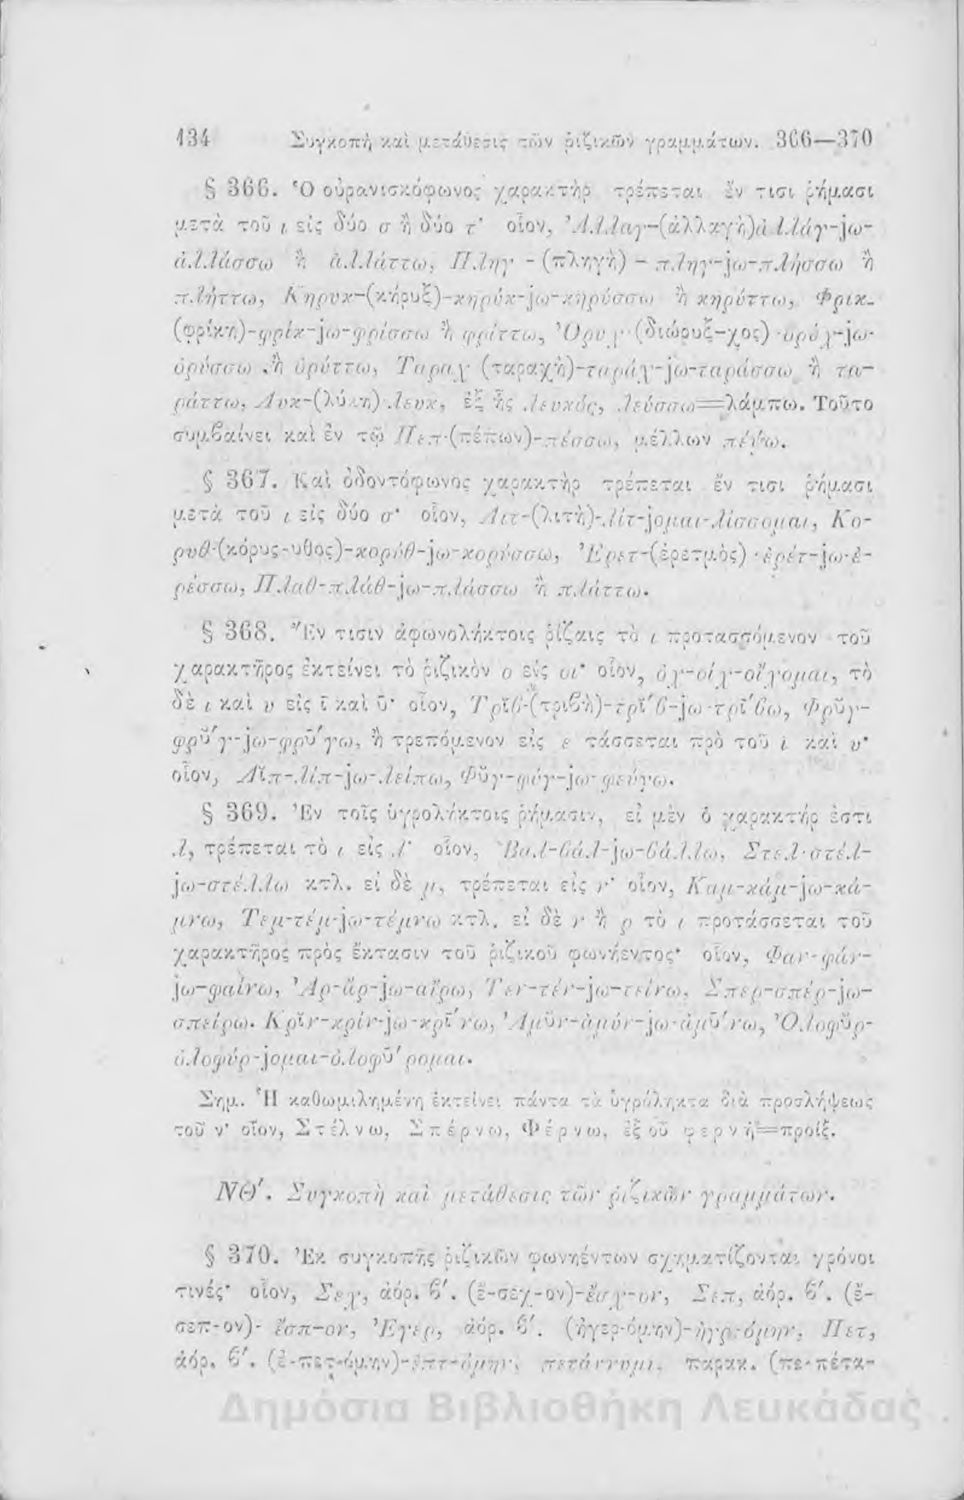 134 Συγκοπὴ καὶ μετάθεσις τῶν ῥιζικῶν γραμμάτων. 366—370
§ 366. Ὁ οὐρανισκόφωνος χαρακτὴρ τρέπεται ἔν τισι ῥήμασι
μετὰ τοῦ ι εἰς δύο σ ἢ δύο τ· οἷον, Ἀλλαγ-(ἀλλαγὴ)ἀλλάγ-jω-
ἀλλάσσω ἢ ἀλλάττω, Πληγ-(πληγὴ)-πλήγ-jω-πλήσσω ἢ
πλήττω, Κηρυκ-(κήρυξ)-κηρύκ-jω-κηρύσσω ἢ κηρύττω, Φρικ-
(φρίκη)-φρίκ-jω-φρίσσω ἢ φρίττω, Ὀρυχ-(διώρυξ-χος)-ὀρύχ-jω-
ὀρύσσω ἢ ὀρύττω, Ταραχ (ταραχὴ)-ταράχ-jω-ταράσσω ἢ τα-
ράττω, Λυκ-(λύκη) λευκ, ἐξ ἧς λευκὸς, λεύσσω=λάμπω. Τοῦτο
συμβαίνει καὶ ἐν τῷ Πεπ-(πέπων)-πέσσω, μέλλων πέψω.
§ 367. Καὶ ὀδοντόφωνος χαρακτὴρ τρέπεται ἔν τισι ῥήμασι
μετὰ τοῦ ι εἰς δύο σ· οἷον, Λιτ-(λιτὴ)-λίτ-jομαι-λίσσομαι, Κο-
ρυθ-(κόρυς-υθος)-κορύθ-jω-κορύσσω, Ἐρετ-(ἐρετμὸς)-ἐρέτ-jω-ἐ-
ρέσσω, Πλαθ-πλάθ-jω-πλάσσω ἢ πλάττω.
§ 368. Ἔν τισιν ἀφωνολήκτοις ῥίζαις τὸ ι προτασσόμενον τοῦ
χαρακτῆρος ἐκτείνει τὸ ῥιζικὸν ο εἰς οι· οἷον, ὀχ-οἰχ-οἴχομαι, τὸ
δὲ ι καὶ υ εἰς ῑ καὶ ῡ· οἷον, Τρῐβ-(τριβὴ)-τρῑ́β-jω-τρῑ́βω, Φρῡγ-
φρῡ́γ-jω-φρῡ́γω, ἢ τρεπόμενον εἰς ε τάσσεται πρὸ τοῦ ι καὶ υ·
οἷον, Λῐπ-λίπ-jω-λείπω, Φῠγ-φύγ-jω-φεύγω.
§ 369. Ἐν τοῖς ὑγρολήκτοις ῥήμασιν, εἰ μὲν ὁ χαρακτήρ ἐστι
λ, τρέπεται τὸ ι εἰς λ· οἷον, Βαλ-βάλ-jω-βάλλω, Στελ-στέλ-
jω-στέλλω κτλ. εἰ δὲ μ, τρέπεται εἰς ν· οἷον, Καμ-κάμ-jω-κά-
μνω, Τεμ-τέμ-jω-τέμνω κτλ. εἰ δὲ ν ἢ ρ τὸ ι προτάσσεται τοῦ
χαρακτῆρος πρὸς ἔκτασιν τοῦ ῥιζικοῦ φωνήεντος· οἷον, Φαν-φάν-
jω-φαίνω, Ἀρ-ἄρ-jω-αἴρω, Τεν-τέν-jω-τείνω, Σπερ-σπέρ-jω-
σπείρω. Κρῐν-κρίν-jω-κρῑ́νω, Ἀμῠν-ἀμύν-jω-ἀμῡ́νω, Ὀλοφῠρ-
ὀλοφύρ-jομαι-ὀλοφῡ́ρομαι.
Σημ. Ἡ καθωμιλημένη ἐκτείνει πάντα τὰ ὑγρόληκτα διὰ προσλήψεως
τοῦ ν· οἷον, Στέλνω, Σπέρνω, Φέρνω, ἐξ οὗ φερνή=προίξ.
ΝΘ΄. Συγκοπὴ καὶ μετάθεσις τῶν ῥιζικῶν γραμμάτων.
§ 370. Ἐκ συγκοπῆς ῥιζικῶν φωνηέντων σχηματίζονται χρόνοι
τινές· οἷον, Σεχ, ἀόρ. β΄. (ἔ-σεχ-ον)-ἔσχ-ον, Σεπ, ἀόρ. β΄. (ἔ-
σεπ-ον)-ἔσπ-ον, Ἐγερ, ἀόρ. β΄. (ἠγερ-όμην)-ἠγρ-όμην, Πετ,
ἀόρ. β΄. (ἐ-πετ-όμην)-ἐπτ-όμην, πετάννυμι, παρακ. (πε-πέτα-
Δημόσια Βιβλιοθήκη Λευκάδας